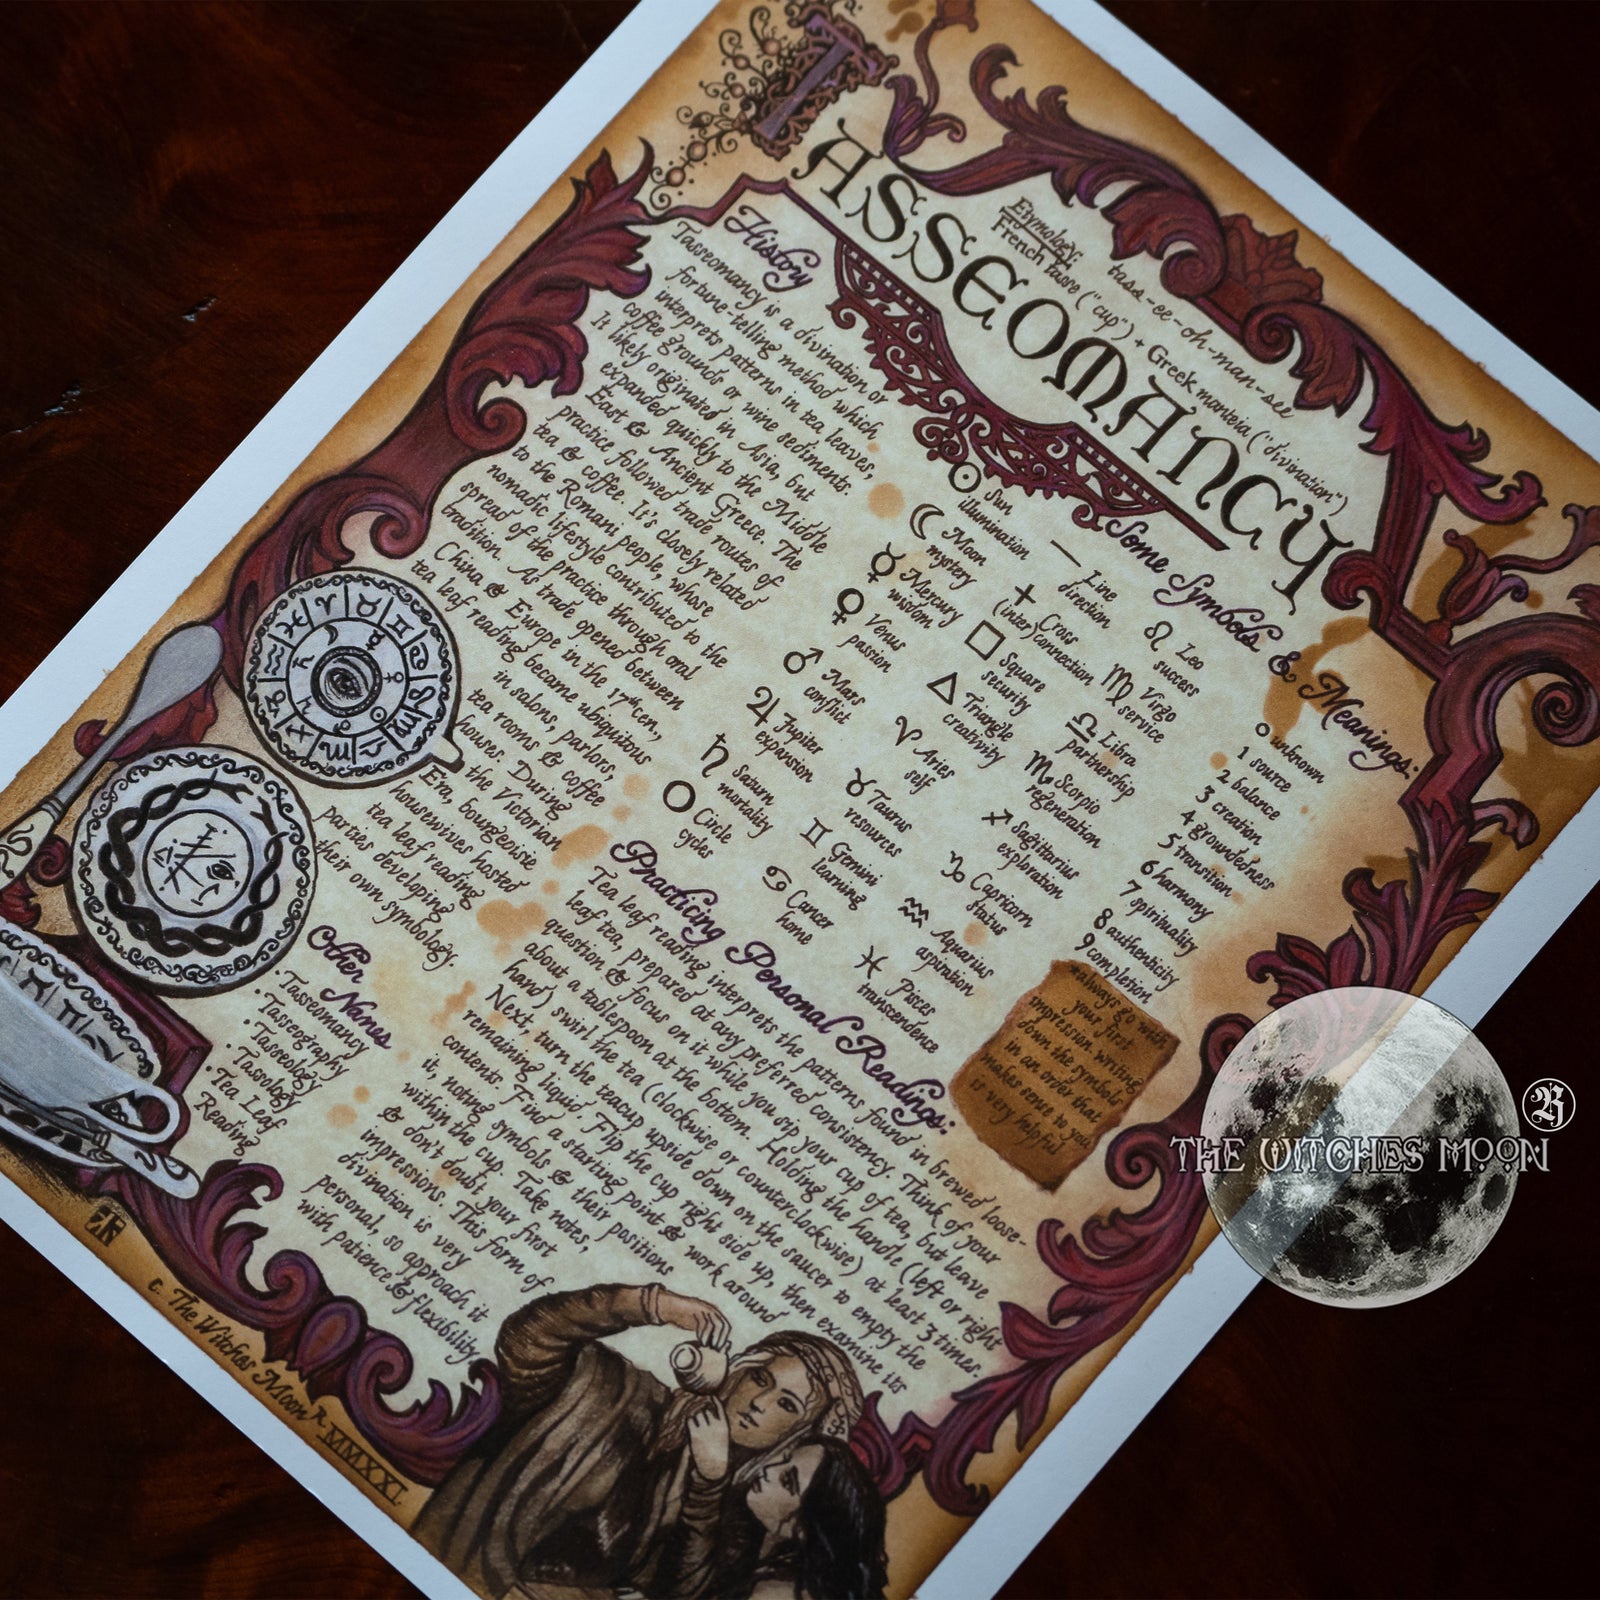 TASSEOMANCY
Etymology: tass-ee-oh-man-see
French tasse ("cup") + Greek manteia ("divination")
History
Tasseomancy is a divination or
fortune-telling method which
interprets patterns in tea leaves,
coffee grounds or wine sediments.
It likely originated in Asia, but
expanded quickly to the Middle
East & Ancient Greece. The
practice followed trade routes of
tea & coffee. It's closely related
to the Romani people, whose
nomadic lifestyle contributed to the
spread of the practice through oral
tradition. As trade opened between
China & Europe in the 17th cen.,
tea leaf reading became ubiquitous
in salons, parlors,
tea rooms & coffee
houses. During
the Victorian
Era, bourgeoisie
housewives hosted
tea leaf reading
parties developing
their own symbology.
Other Names
· Tasseomancy
· Tasseography
· Tasseology
· Tassology
· Tea Leaf
Reading
Some Symbols & Meanings:
☉ Sun
illumination
☾ Moon
mystery
☿ Mercury
wisdom
♀ Venus
passion
♂ Mars
conflict
♃ Jupiter
expansion
♄ Saturn
mortality
○ Circle
cycles
— Line
direction
+ Cross
(inter)connection
□ Square
security
△ Triangle
creativity
♈ Aries
self
♉ Taurus
resources
♊ Gemini
learning
♋ Cancer
home
♌ Leo
success
♍ Virgo
service
♎ Libra
partnership
♏ Scorpio
regeneration
♐ Sagittarius
exploration
♑ Capricorn
status
♒ Aquarius
aspiration
♓ Pisces
transcendence
0 unknown
1 source
2 balance
3 creation
4 groundedness
5 transition
6 harmony
7 spirituality
8 authenticity
9 completion
*always go with
your first
impression. writing
down the symbols
in an order that
makes sense to you
is very helpful
Practicing Personal Readings:
Tea leaf reading interprets the patterns found in brewed loose-
leaf tea, prepared at any preferred consistency. Think of your
question & focus on it while you sip your cup of tea, but leave
about a tablespoon at the bottom. Holding the handle (left or right
hand) swirl the tea (clockwise or counterclockwise) at least 3 times.
Next, turn the teacup upside down on the saucer to empty the
remaining liquid. Flip the cup right side up, then examine its
contents. Find a starting point & work around
it, noting symbols & their positions
within the cup. Take notes,
& don't doubt your first
impressions. This form of
divination is very
personal, so approach it
with patience & flexibility.
c. The Witches Moon R. MMXXI.
THE WITCHES MOON